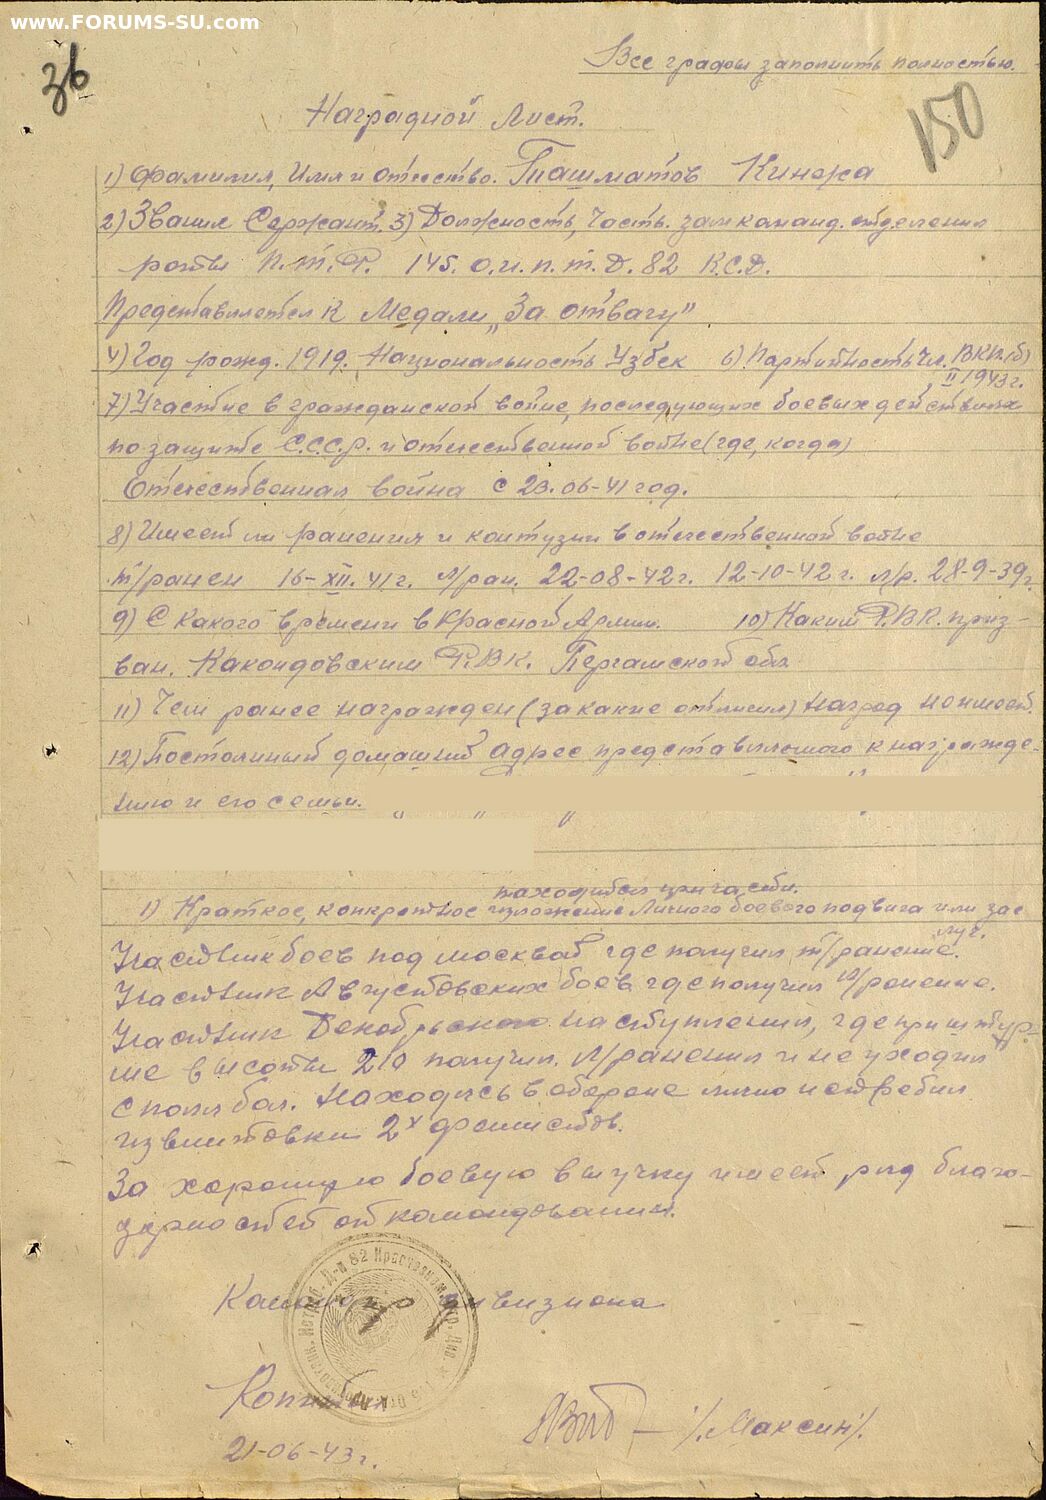 www.FORUMS-SU.com
36
Все графы заполнить полностью.
150
Наградной Лист.
1) Фамилия, Имя и отчество. Ташматов Кинжа
2) Звание Сержант. 3) Должность, часть. зам команд. отделения
роты П.т.Р. 145. о.и.п.т.Д. 82 К.С.Д.
Представляется к Медали „За отвагу"
4) Год рожд. 1919. Национальность Узбек 6) Партийность чл. ВКП(б)
II 1943 г.
7) Участие в гражданской войне, последующих боевых действиях
по защите С.С.С.Р. и отечественной войне (где, когда)
Отечественная война с 23.06-41 год.
8) Имеет ли ранения и контузии в отечественной войне
т/ранен 16-XII.41 г. л/ран. 22-08-42 г. 12-10-42 г. л/р. 28-9-39 г.
9) С какого времени в Красной Армии. 10) Каким Р.В.К. приз-
ван. Какандовским Р.В.К. Ферганской обл.
11) Чем ранее награжден (за какие отличия) наград не имеет.
12) Постоянный домашний адрес представляемого к награжде-
нию и его семьи.
находится при части.
1) Краткое, конкретное изложение личного боевого подвига или зас
луг.
Участник боев под москвой где получил т/ранение.
Участник Августовских боев где получил л/ранение.
Участник Декабрьского наступления, где при штур-
ме высоты 210 получил л/ранения и не уходил
с поля боя. Находясь в обороне лично истребил
из винтовки 2х фашистов.
За хорошую боевую выучку имеет ряд благо-
дарностей от командования.
Командир дивизиона
Капитан
/Максин/.
21-06-43 г.